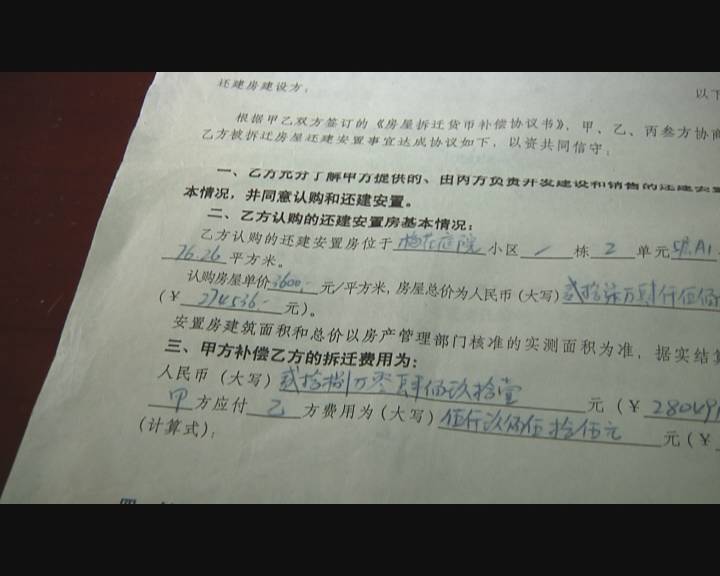 还建房建设方:
以下
根据甲乙双方签订的《房屋拆迁货币补偿协议书》,甲、乙、丙叁方协商
乙方被拆迁房屋还建安置事宜达成协议如下,以资共同信守:
一、乙方充分了解甲方提供的、由丙方负责开发建设和销售的还建安置
本情况,并同意认购和还建安置。
二、乙方认购的还建安置房基本情况:
乙方认购的还建安置房位于梅花庭院小区 1 栋 2 单元 A1
76.26平方米。
认购房屋单价3600.-元/平方米,房屋总价为人民币(大写)贰拾柒万肆仟伍佰
(¥ 274536.- 元)。
安置房建筑面积和总价以房产管理部门核准的实测面积为准,据实结算
三、甲方补偿乙方的拆迁费用为:
人民币(大写)贰拾捌万零肆佰玖拾壹 元(¥ 280491
甲方应付乙方费用为(大写)伍仟玖佰伍拾伍元 元(¥
(计算式):
四、